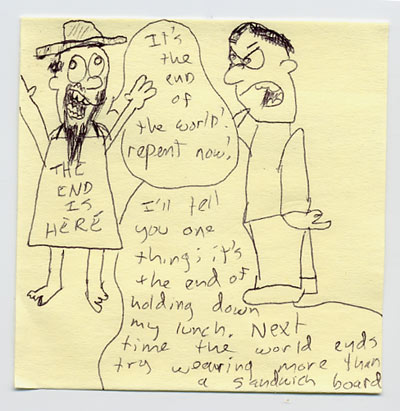 It's
the
end
of
the world!
repent now!
THE
END
IS
HERE
I'll tell
you one
thing; it's
the end of
holding down
my lunch. Next
time the world ends
try wearing more than
a sandwich board